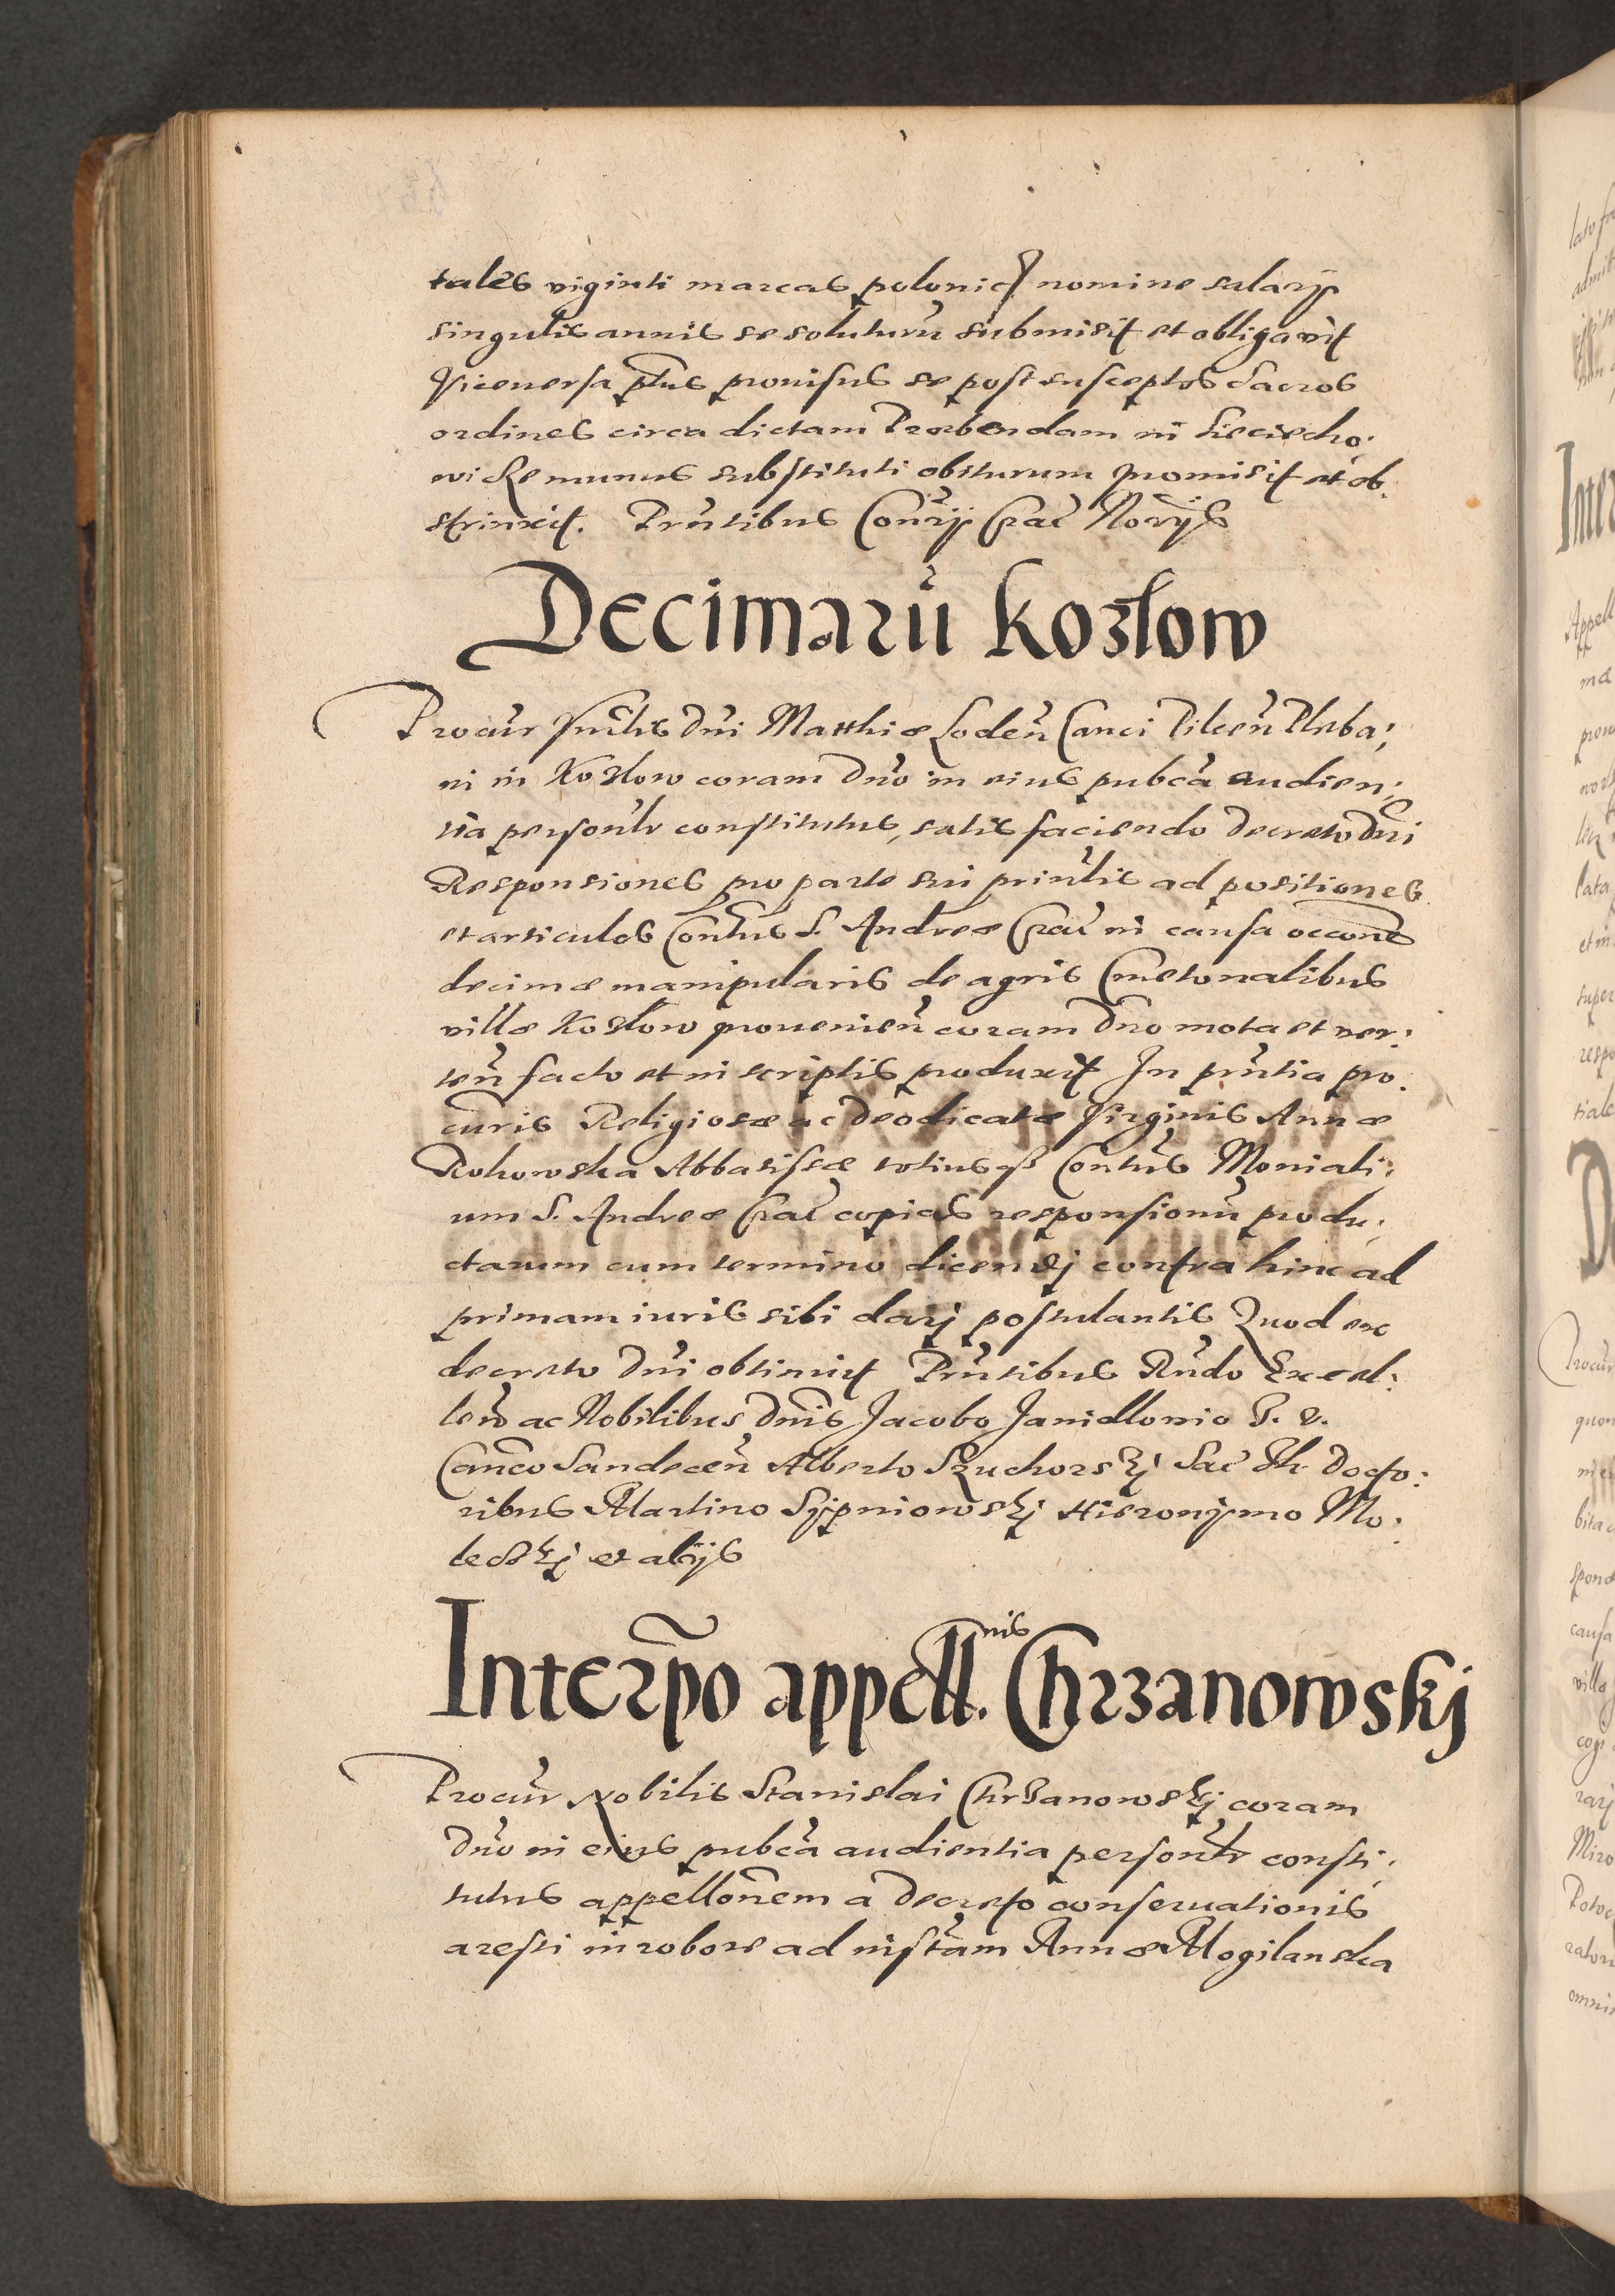 tales viginti marcas polonicales nomine salarij
singulis annis se soluturũ submisit et obligavit
Viceversa ptus provisus se post susceptos Sacros
ordines circa dictam Præbendam in Sieciecho:
wicke munus substituti obiturum promisit et ob:
strinxit. Prñtibus Conrij Crac Norijs
Decimarũ Kozlow
Procur Vnlis Dñi Matthiæ Loden Canci Pilcen Pleba:
ni in Kozlow coram Dño in eius pubca audien:
tia personlr constitutus, satis faciendo Decreto Dñi
Responsiones pro parte sui prinlis ad positiones
et articulos Contus S. Andreæ Crac in causa occone
decimæ manipularis de agris Cmetonalibus
villæ Kozlow provenien coram Dño mota et ver:
ten facto et in scriptis produxit In prñtia pro:
curis Religiosæ ac Deodicatæ Virginis Annæ
Rokowska Abbatissæ totiusqȝ Contus Moniali:
um S. Andreæ Crac copias responsionũ produ:
ctarum cum termino dicendj contra hinc ad
primam iuris sibi darj postulantis Quod ex
decreto Dñi obtinuit Prñtibus Rñdo Excel:
len ac Nobilibus Dñis Jacobo Janidlovio I. V.
Canco Sandecen Alberto Szuchorskj Sac Th Docto:
ribus Martino Sijpniowskj Hieronymo Mo:
decskj et alijs
Interpo appell.nis Chrzanowskj
Procur Nobilis Stanislai Chrzanowskj coram
Dño in eius pubca audientia personlr consti:
tutus appellonem a Decreto conservationis
aresti in robore ad instam Annæ Mogilanska